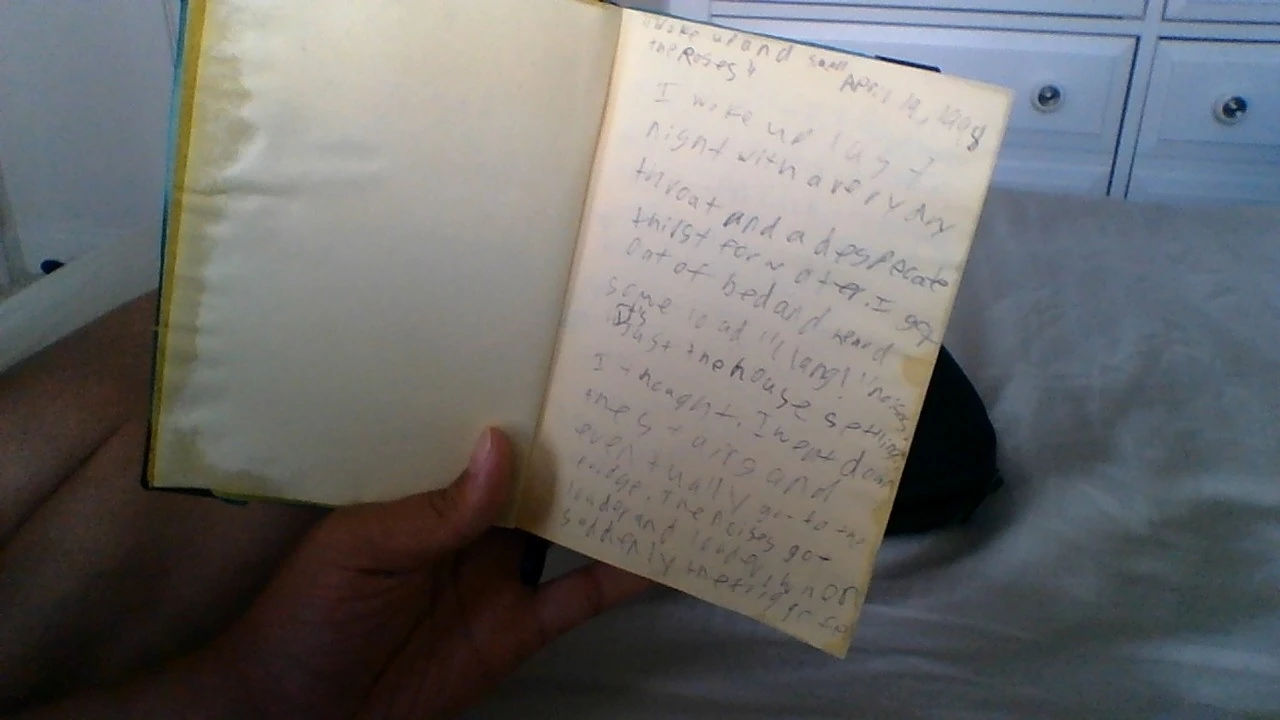 "Woke up and smell
the Roses"
April 19, 1998
I woke up last
night with a very dry
throat and a desperate
thirst for water. I got
out of bed and heard
some loud "clang!" noises.
"It's just the house settling"
I thought. I went down
the stairs and
eventually got to the
fridge. The noises got
louder and louder when
suddenly the fridge